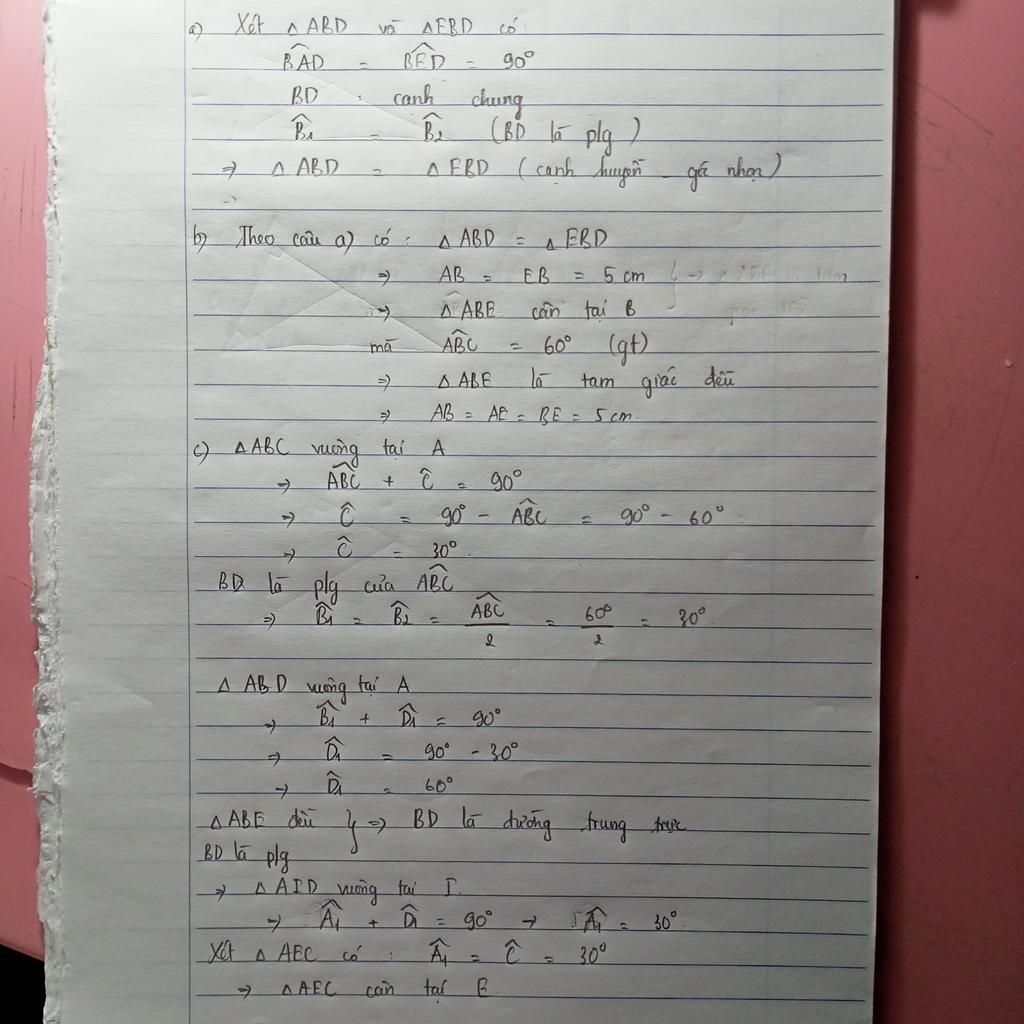 a) Xét △ABD và △EBD có:
∠BAD = ∠BED = 90°
BD : cạnh chung
∠B₁ = ∠B₂ (BD là plg)
=> △ABD = △EBD (cạnh huyền - góc nhọn)
=>
b) Theo câu a) có: △ABD = △EBD
=> AB = EB = 5 cm
=> △ABE cân tại B
mà ∠ABC = 60° (gt)
=> △ABE là tam giác đều
=> AB = AE = BE = 5 cm.
c) △ABC vuông tại A
=> ∠ABC + ∠C = 90°
=> ∠C = 90° - ∠ABC = 90° - 60°
=> ∠C = 30°.
BD là plg của ∠ABC
=> ∠B₁ = ∠B₂ = ∠ABC/2 = 60°/2 = 30°
△ABD vuông tại A
=> ∠B₁ + ∠D₁ = 90°
=> ∠D₁ = 90° - 30°
=> ∠D₁ = 60°
△ABE đều } => BD là đường trung trực
BD là plg
=> △AID vuông tại I.
=> ∠A₁ + ∠D₁ = 90° → ∠A₁ = 30°
Xét △AEC có: ∠A₁ = ∠C = 30°
=> △AEC cân tại E